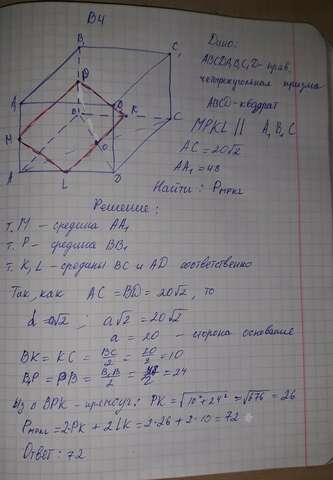 В4
Дано:
ABCDA₁B₁C₁D₁ - прав.
четырехугольная призма
ABCD - квадрат
MPKL || A₁B₁C
AC = 20√2
AA₁ = 48
Найти: P_MPKL
Решение:
т. M - средина AA₁
т. P - средина BB₁
т. K, L - средины BC и AD соответственно
Так, как AC = BD = 20√2, то
d = a√2 ; a√2 = 20√2
a = 20 - сторона основания
BK = KC = BC/2 = 20/2 = 10
B₁P = PB = B₁B/2 = 48/2 = 24
Из Δ BPK - прямоуг: PK = √10² + 24² = √676 = 26
P_MPKL = 2PK + 2LK = 2·26 + 2·10 = 72
Ответ: 72
B₁
C₁
P
A₁
D₁
B
K
C
M
O
A
L
D